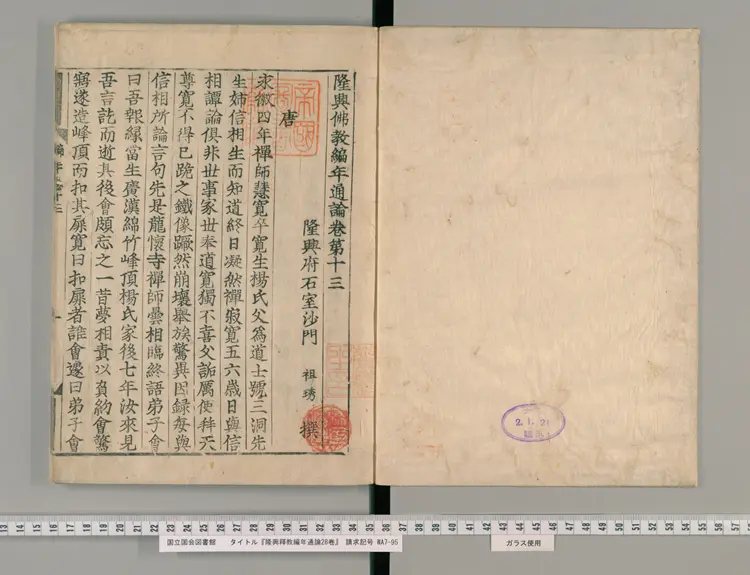 隆興佛教編年通論卷第十三
隆興府石室沙門 祖琇 撰
唐
永徽四年禪師慧寬卒寬生楊氏父為道士號三洞先
生姉信相生而知道終日凝然禪寂寬五六歲日與信
相譚論俱非世事家世奉道寬獨不喜父詬厲使拜天
尊寬不得已跪之鐵像蹶然崩壞舉族驚異因録每與
信相所論言句先是龍懷寺禪師曇相臨終語弟子會
曰吾報緣當生廣漢綿竹峰頂楊氏家後七年汝來見
吾言訖而逝其後會頗忘之一昔夢相責以負約會驚
寤遂造峰頂而扣其扉寬曰扣扉者誰會邊曰弟子會
2.1.21
国立国会図書館 タイトル『隆興釋教編年通論28巻』 請求記号 WA7-95
ガラス使用
13 14 15 16 17 18 19 20 21 22 23 24 25 26 27 28 29 30 31 32 33 34 35 36 37 38 39 40 41 42 43 44 45 46 47 48 49 50 51 52 53 54 55 56 57